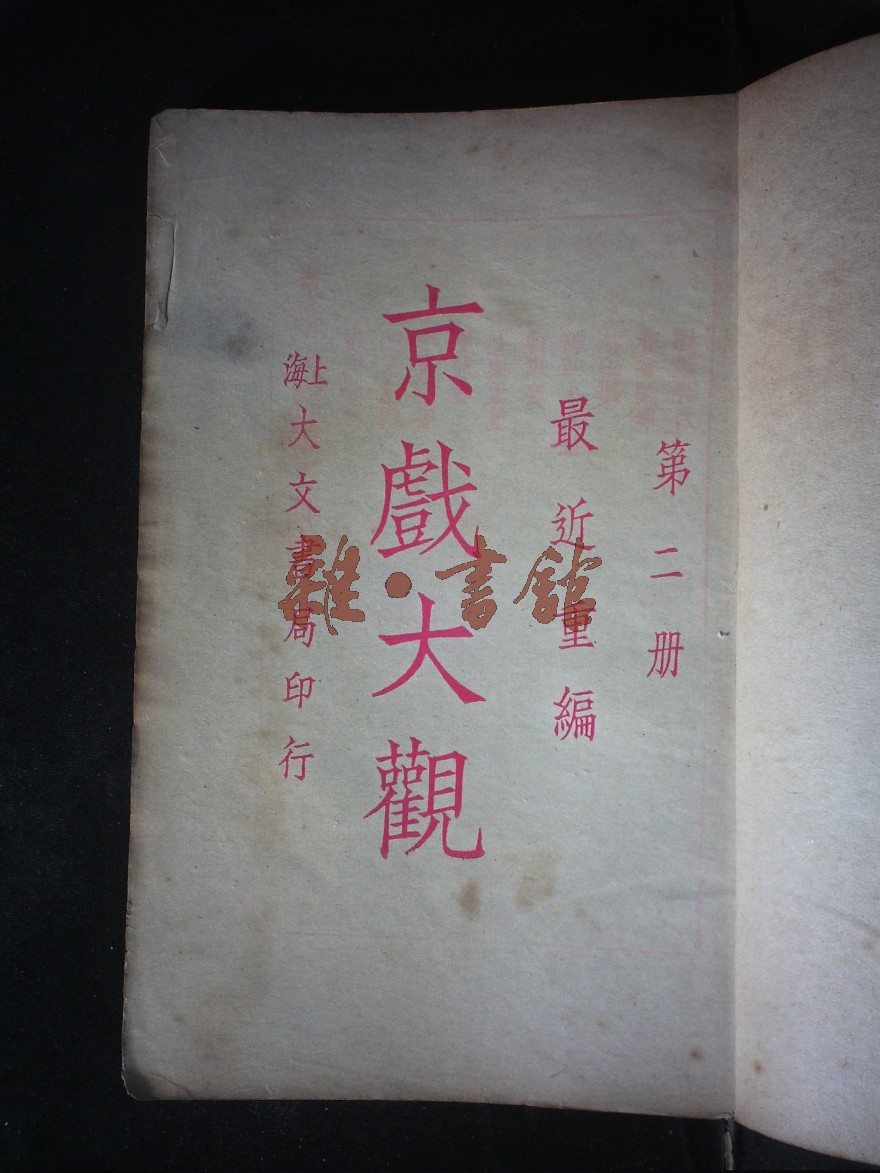 第二册
最近重編
京戲大觀
上海大文書局印行
雜·書館